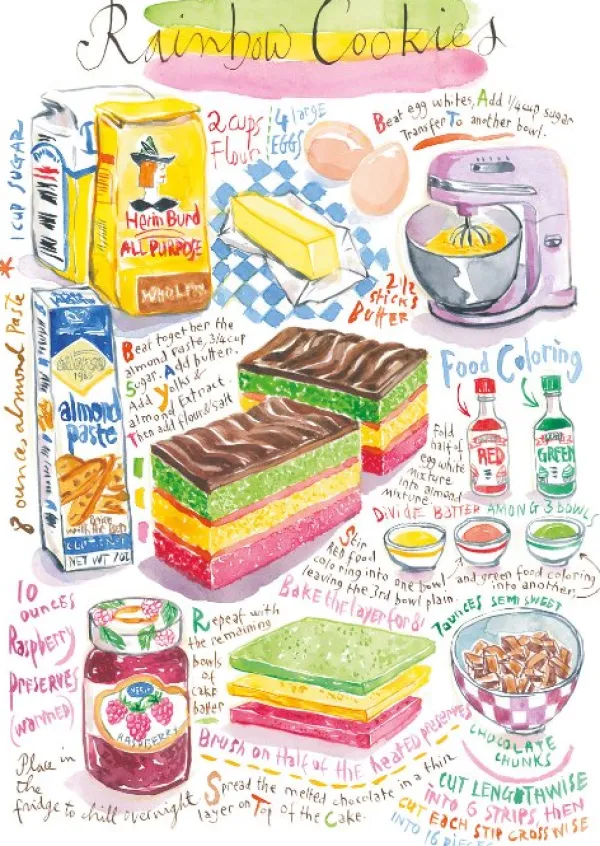 Rainbow Cookies
1 CUP SUGAR
Herin Burd
ALL PURPOSE
2 cups
Flour
4 large
EGGS
Beat egg whites, Add 1/4 cup sugar
Transfer To another bowl.
2 1/2
sticks
Butter
* 8 ounces almond Paste
almond
paste
NET WT 7OZ
Beat together the
almond paste, 3/4 cup
Sugar. Add butter.
Add yolks &
almond Extract.
Then add flour & salt
Food Coloring
RED
GREEN
Fold
half of
egg white
mixture
into almond
mixture.
DIVIDE BATTER AMONG 3 BOWLS
Stir
RED food
coloring into one bowl and green food coloring
into another,
leaving the 3rd bowl plain.
Bake the layer for 8'
10
ounces
Raspberry
PRESERVES
(WARMED)
RASPBERRY
Repeat with
the remaining
bowls
of
cake
batter
7 OUNCES SEMI SWEET
CHOCOLATE
CHUNKS
Brush on Half of the heated preserves
Place in
the
fridge to chill overnight
Spread the melted chocolate in a thin
layer on Top of the Cake.
CUT LENGTHWISE
INTO 6 STRIPS, then
CUT EACH STIP CROSSWISE
INTO 16 PIECES